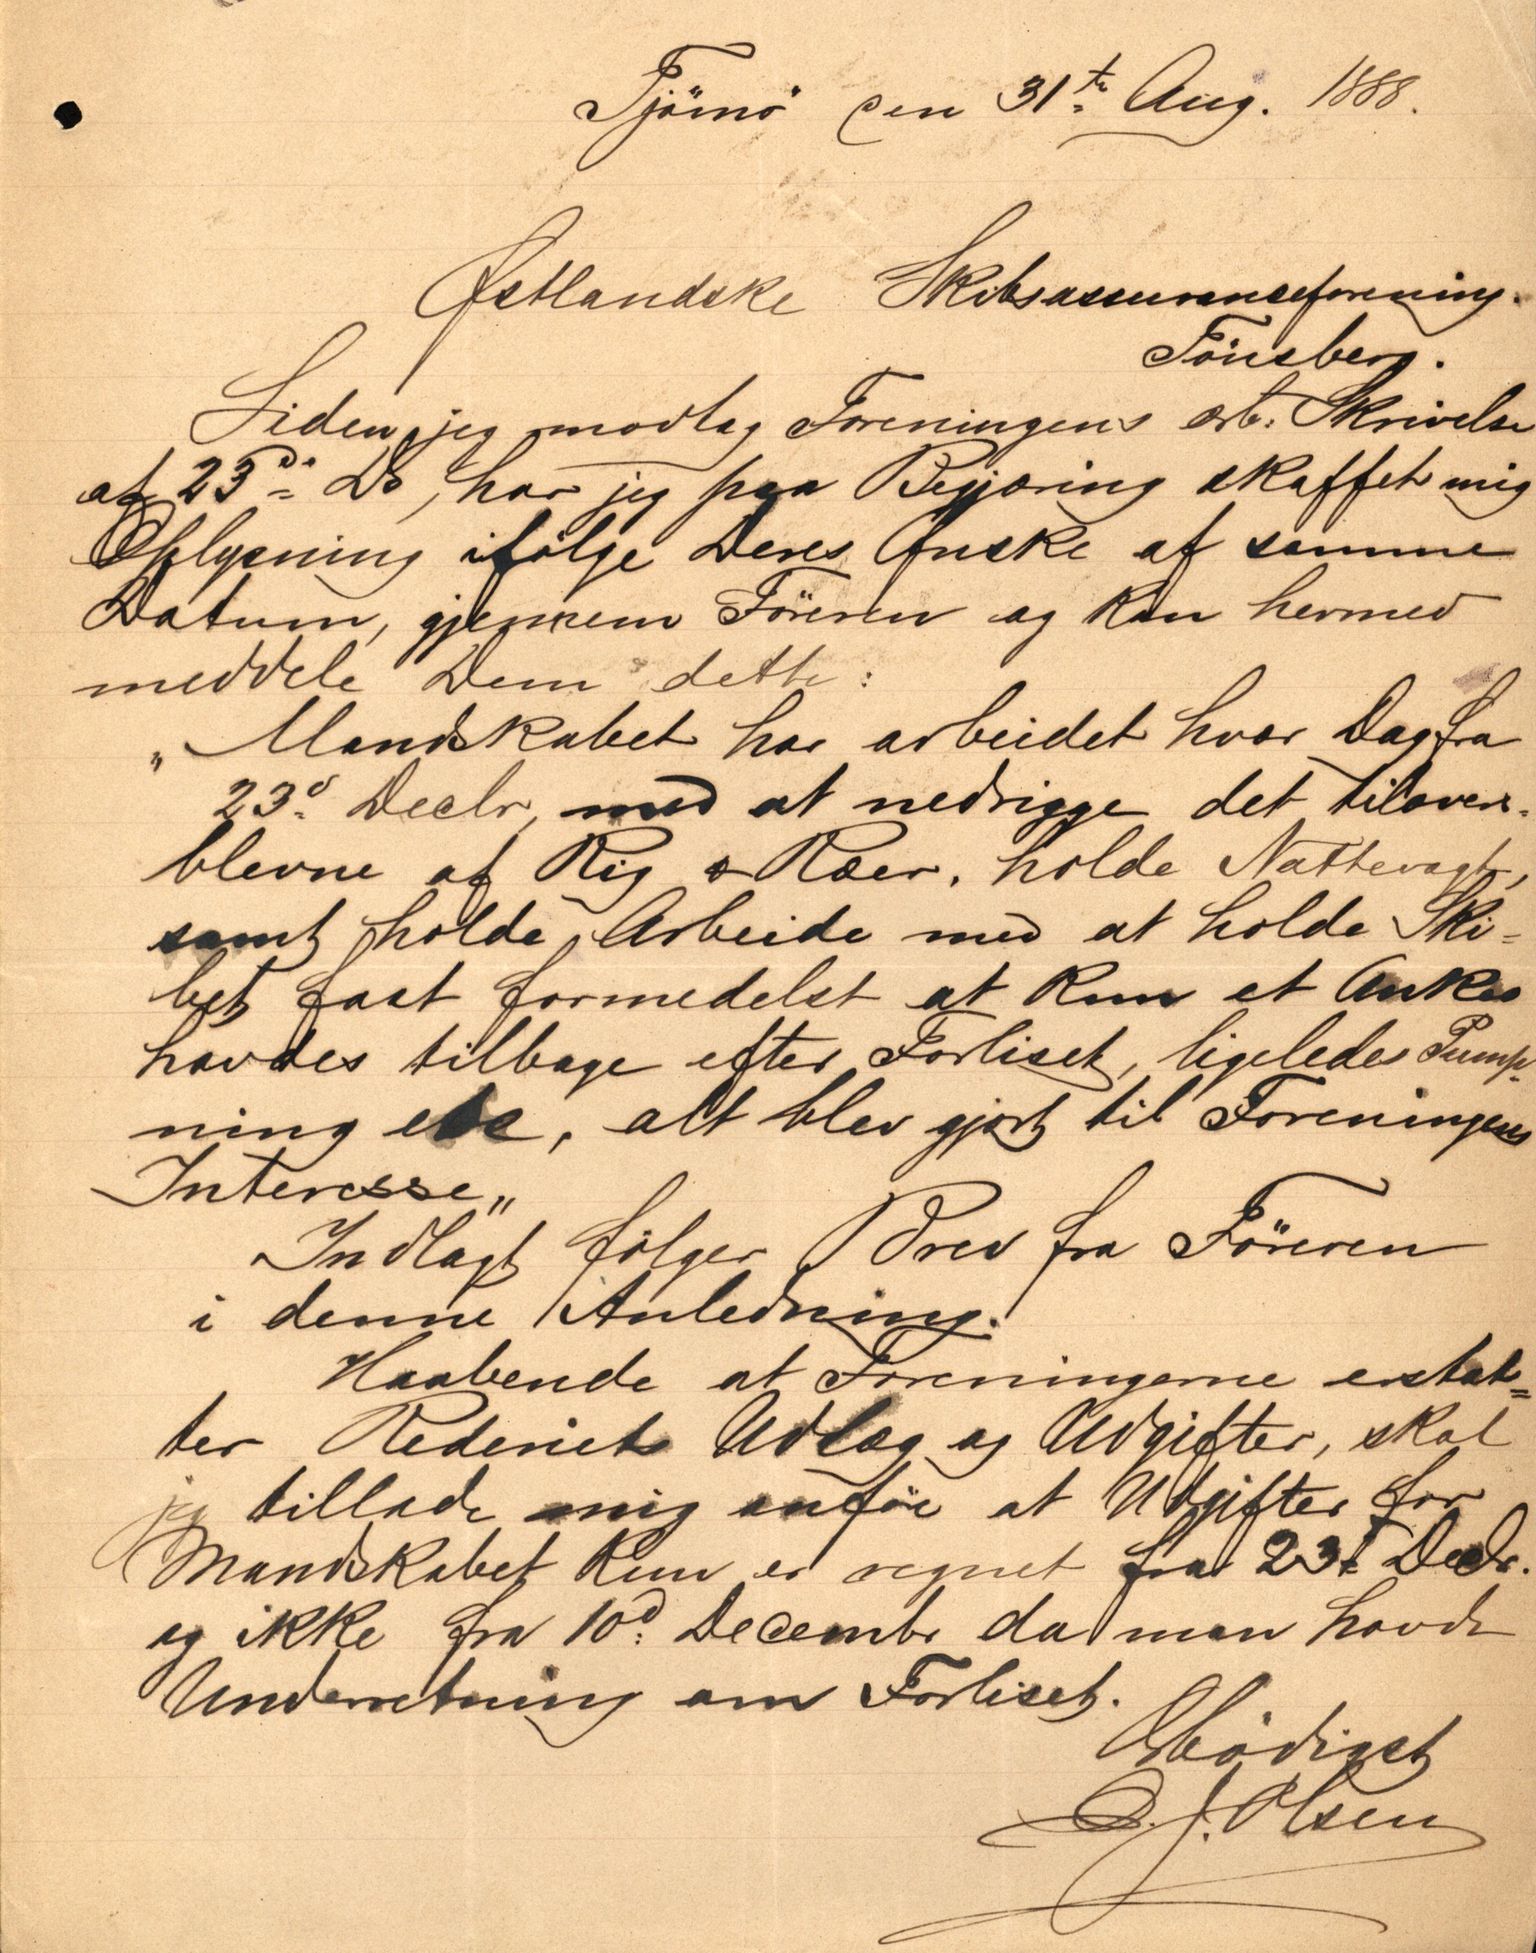 Tjömö den 31te Aug. 1888.
Østlandske Skibsassuranceforening.
Tönsberg.
Siden jeg modtog Foreningens ærb. Skrivelse
af 23de Ds, har jeg paa Begjæring skaffet mig
Oplysning ifølge Deres Ønske af samme
Datum, gjennem Föreren og kan hermed
meddele Dem dette:
„Mandskabet har arbeidet hver Dag fra
23d Decbr, med at nedrigge det tilovers-
blevne af Rig & Ræer, holde Nattevagt,
samt holde Arbeide med at holde Ski-
bet fast formedelst at kun et Anker
havdes tilbage efter Forliset, ligeledes Pump-
ning etc, alt blev gjort til Foreningens
Interesse„
Indlagt følger Brev fra Föreren
i denne Anledning.
Haabende at Foreningerne erstat=
ter Rederiets Udlæg og Udgifter, skal
jeg tillade mig anføre at Udgifter for
Mandskabet kun er regnet fra 23d Decbr.
og ikke fra 10d. Decembr da man havde
Underretning om Forliset.
Ærbödigst
J. Olsen